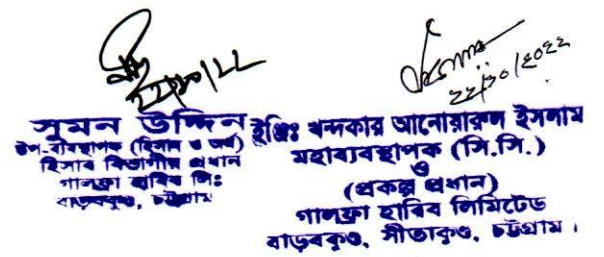 ২২/১০/২২
সুমন উদ্দিন
উপ-ব্যবস্থাপক (হিসাব ও অর্থ)
হিসাব বিভাগীয় প্রধান
গালফ্রা হাবিব লিঃ
বাড়বকুণ্ড, চট্টগ্রাম
২২/১০/২০২২
ইঞ্জিঃ খন্দকার আনোয়ারুল ইসলাম
মহাব্যবস্থাপক (সি.সি.)
ও
(প্রকল্প প্রধান)
গালফ্রা হাবিব লিমিটেড
বাড়বকুণ্ড, সীতাকুণ্ড, চট্টগ্রাম।